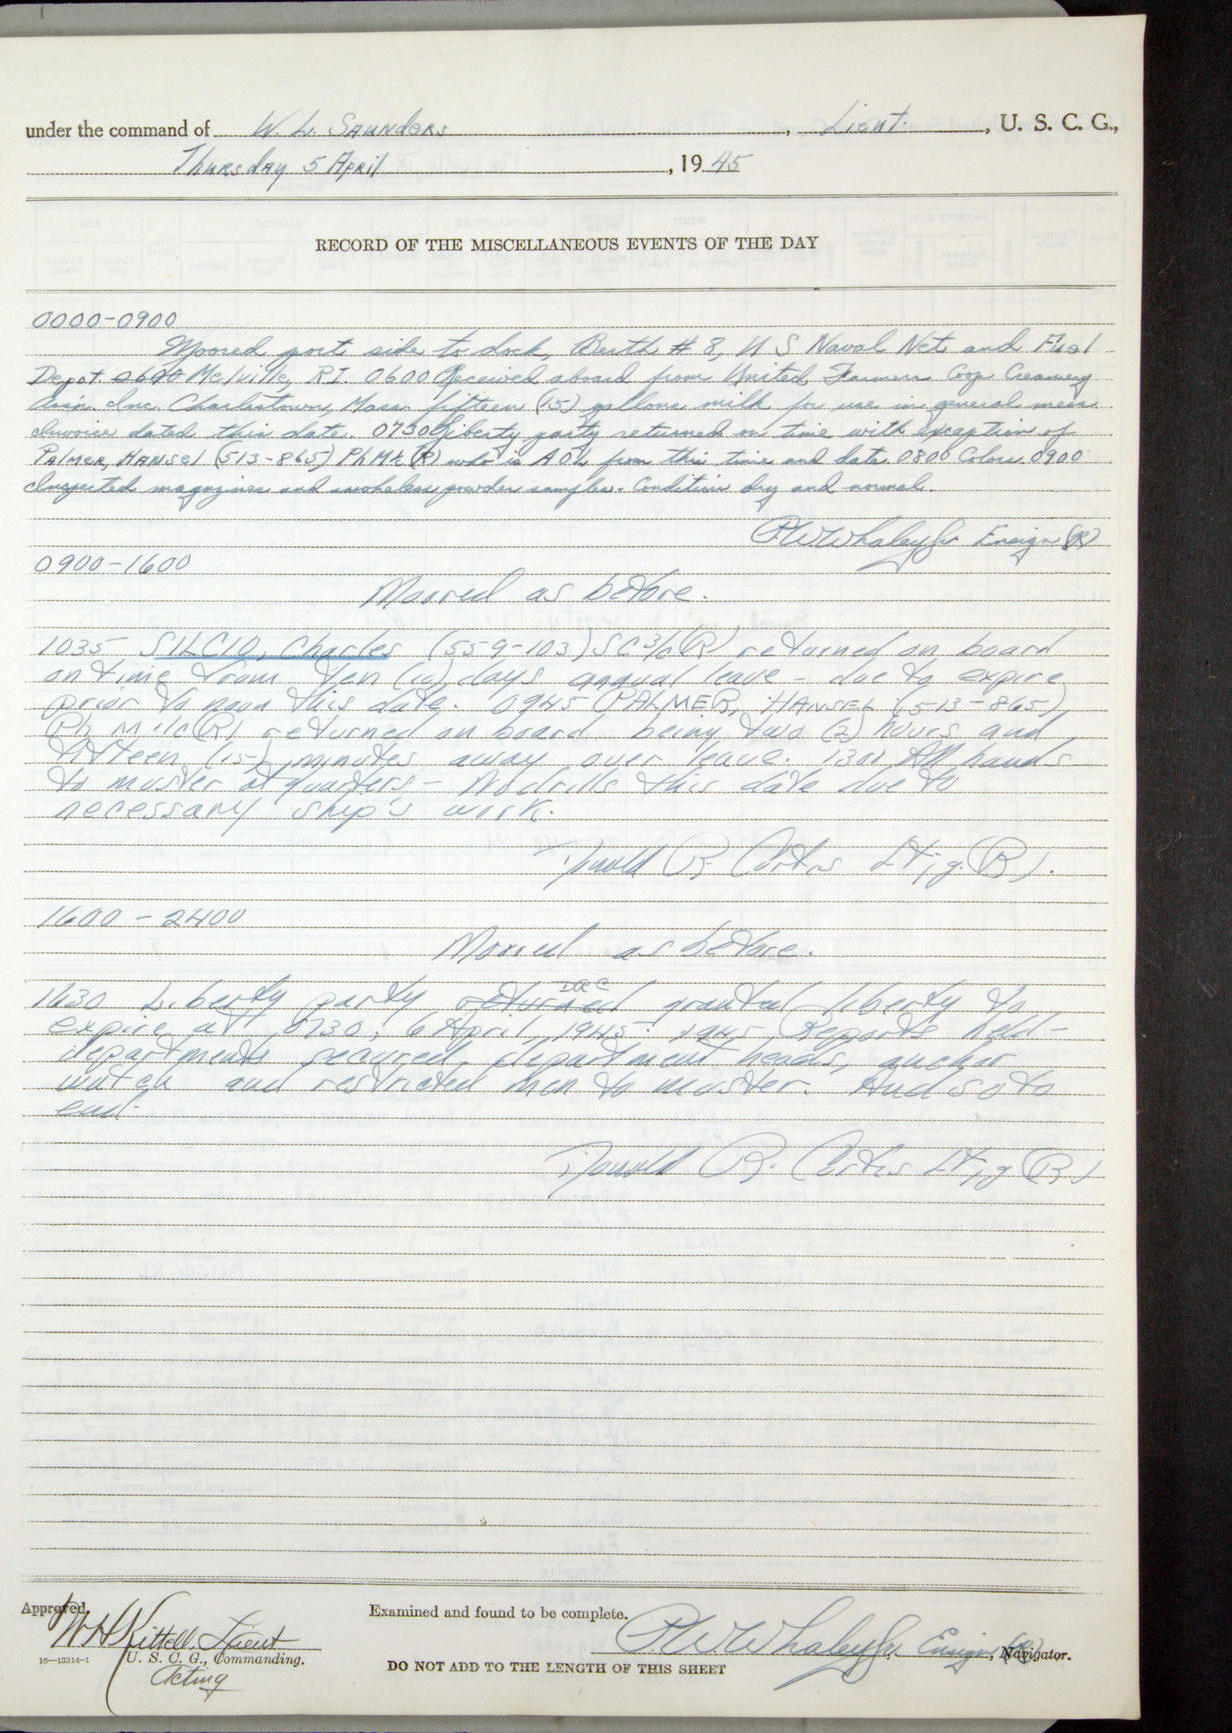 under the command of W. L. SAUNDERS, Lieut., U. S. C. G.,
Thursday 5 April, 1945
RECORD OF THE MISCELLANEOUS EVENTS OF THE DAY
0000-0900
Moored port side to dock, Berth # 8, U S Naval Net and Fuel
Depot Melville, RI. 0600 Received aboard from United Farmers Coop Creamery
Assn. Inc. Charlestown, Mass. fifteen (15) gallons milk for use in general mess
Invoice dated this date. 0730 Liberty party returned on time with exception of
PALMER, HANSEL (513-865) PhM1c (R) who is A O L from this time and date. 0800 Colors. 0900
Inspected magazines and smokeless powder samples. Condition dry and normal.
P.W. Whaley Jr. Ensign (R)
0900-1600
Moored as before.
1035 SILCIO, Charles (559-103) SC3/c(R) returned on board
on time from ten (10) days annual leave - due to expire
prior to noon this date. 0945 PALMER, HANSEL (513-865)
Ph M 1/c (R) returned on board being two (2) hours and
fifteen (15) minutes away over leave. 1300 All hands
to muster at quarters - No drills this date due to
necessary ship's work.
Donald R Curtis Lt.j.g. (R).
1600 - 2400
Moored as before.
DRC
1630 Liberty party returned granted liberty to
expire at 0730, 6 April, 1945. 1945 Reports held -
departments secured, department heads, anchor
watch and restricted men to muster. And so to
end.
Donald R. Curtis Lt.j.g (R)
Approved,
W H Kittell, Lieut
16—13314-1 U. S. C. G., Commanding.
Acting
Examined and found to be complete.
P.W. Whaley Jr. Ensign (R), Navigator.
DO NOT ADD TO THE LENGTH OF THIS SHEET